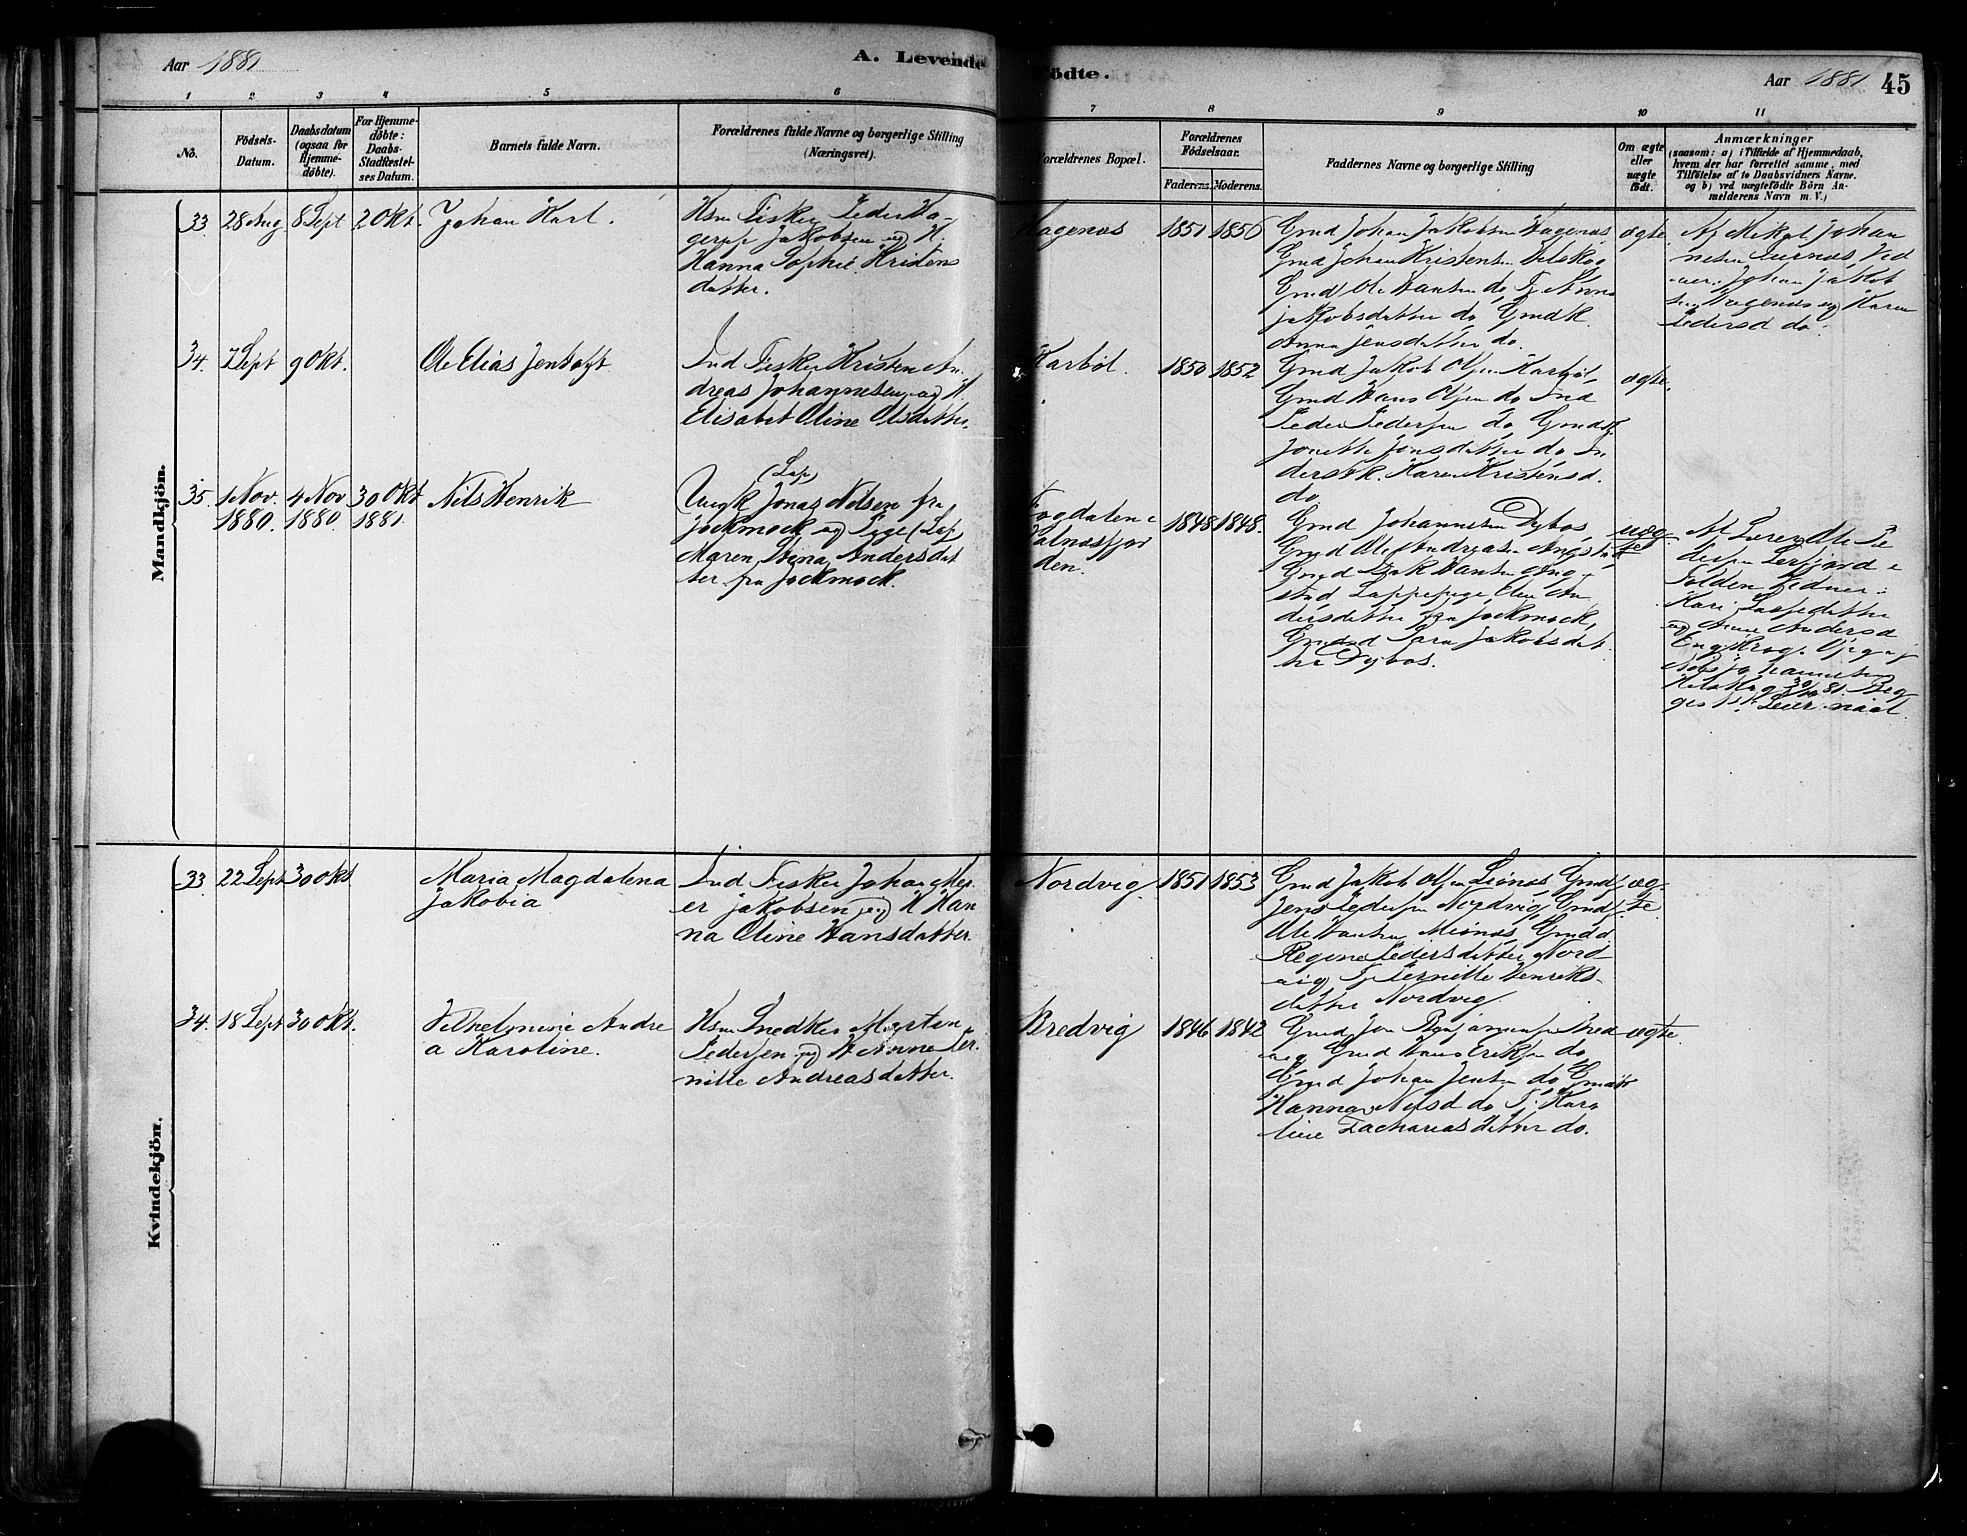 Aar 1881
A. Levende Fødte.
Aar 1881
45
1 2 3 4 5 6 7 8 9 10 11
No.
Fødsels-
Datum.
Daabsdatum
(ogsaa for
Hjemme-
døbte).
For Hjemme-
døbte:
Daabs-
Stadfæstel-
ses Datum.
Barnets fulde Navn.
Forældrenes fulde Navne og borgerlige Stilling
(Næringsvei).
Forældrenes Bopæl.
Forældrenes
Fødselsaar.
Faderens. Moderens.
Faddernes Navne og borgerlige Stilling
Om ægte
eller
uægte
født.
Anmærkninger
(saasom: a) i Tilfælde af Hjemmedaab,
hvem der har forrettet samme, med
Tilføielse af to Daabsvidners Navne.
og b) ved uægtefødte Børn An-
melderens Navn m. V.)
Mandkjön.
33 28 Aug 8 Sept 2 Okt. Johan Karl.
Hsm Fisker Peder Ha-
gerup Jakobsen og H.
Hanna Sophie Kristens
datter.
Hagenæs 1851 1856
Gmd Johan Jakobsen Hagenæs
Gmd Johan Kristensen
Gmd Ole Hansen do
Jakobsdatter do Gmdk.
Anna Jensdatter do.
ægte.
Af Mikal Johan
Johan Jakob
sen Hagenæs og Karen
Pedersd do.
34. 7 Sept 9 Okt. Ole Elias Jentoft
Ind Fisker Kristen An-
dreas Johannesen og H.
Elisabet Oline Olsdatter.
Karbøl. 1850 1852
Gmd Jakob Olsen Karbøl
Gmd Hans Olsen do Ind
Peder Pedersen do Gmdsk
Jonette Jonsdatter do In
derstk. Karen Kristensd.
do
ægte.
35. 1 Nov. 4 Nov 30 Okt Nils Henrik
1880. 1880. 1881.
(Lap)
Ungk Jonas Nilsen fra
Jockmock og Pige (Lap)
Maren Stina Andersdat
ter fra Jockmock.
Fogdalen i
Valnæsfjor
den.
1848 1848.
Gmd Johannes Dybos,
Gmd Ole Andreasen Angstad
Gmd Isak Hansen Ang-
stad Lappepige Andersdatter fra Jockmock,
Gmdsd Sara Jakobsdat
ter Dybos.
uæg
te.
Af Ole Pe
dersen
Folden Vidner:
Kari
og Andersd
Johannesen
30/10 81.
Kvindekjön.
33 22 Sept 30 Okt Maria Magdalena
Jakobia
Ind Fisker Johan Mey
er Jakobsen og H Han
na Oline Hansdatter.
Nordvig. 1851 1853
Gmd Jakob Olsen Gmd
Jens Pedersen Nordvig, Gmd
Ole Hansen Gmdd
Regine Pedersdatter Nord
vig Pernille Henriks-
datter Nordvig.
æg-
te.
34. 18 Sept 30 Okt. Vilhelmine Andre
a Karoline.
Hsm Snedker Morten
Pedersen og H Anne Per
nille Andreasdatter.
Bredvig 1846 1842
Gmd Jon Benjaminsen Bred
vig Gmd Hans Eriksen do
Gmd Johan Jensen do
Hanna Nilsd do P. Karo
line Zachariasdatter do.
ægte.